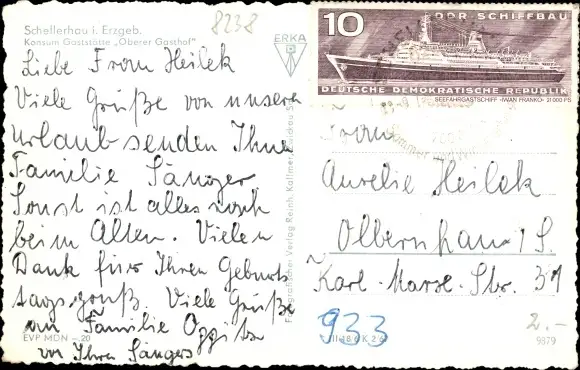 Schellerhau i. Erzgeb.
Konsum Gaststätte „Oberer Gasthof"
8238
ERKA
Liebe Frau Heilek
Viele Grüße von unserem
Urlaub senden Ihnen
Familie Sänger
Sonst ist alles noch
beim Alten. Vielen
Dank für Ihren Geburts
tagsgruß. Viele Grüße
an Familie
von Ihren Sängers
EVP MDN -,20
10
DDR SCHIFFBAU
DEUTSCHE DEMOKRATISCHE REPUBLIK
SEEFAHRGASTSCHIFF »IWAN FRANKO« 21000 PS
Frau
Aurelie Heilek
Olbernhau / S.
Karl-Marx-Str. 31
933
2.-
9879